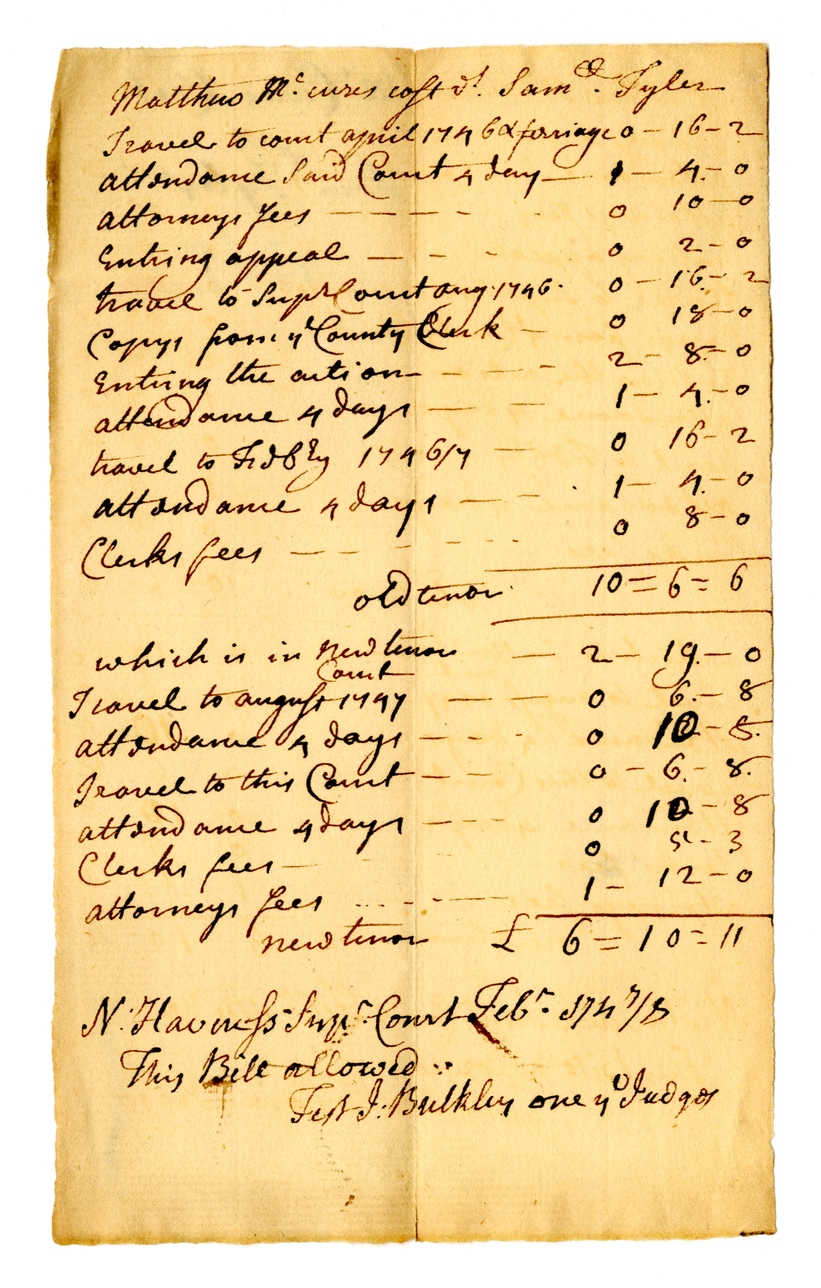 Matthew Mc.cures cost vs. Samll. Tyler
Travel to court april 1746 & ferriage 0 - 16 - 2
attendance Said Court 4 day — 1 - 4 - 0
attorneys fees — — — 0 10 - 0
Entring appeal — — - 0 2 - 0
travel to Supr Court aug. 1746. 0 - 16 - 2
Copys from ye County Clerk — 0 18 - 0
Entring the action — - - - 2 - 8 - 0
attendance 4 days — — 1 - 4 - 0
travel to Febry 1746/7 — 0 16 - 2
attendance 4 days — — - 1 - 4 - 0
Clerks fees — — - - - 0 8 - 0
old tenor 10 = 6 = 6
which is in new tenor — 2 - 19 - 0
Travel to august Court 1747 — — 0 6 - 8
attendance 4 days — - - 0 10 - 8
Travel to this Court — — 0 - 6 - 8
attendance 4 days — - - 0 10 - 8
Clerks fees — 0 5 - 3
attorneys fees ... - — 1 - 12 - 0
new tenor £ 6 = 10 = 11
N. Haven Ss Supr. Court Febr. 1747/8
This Bill allowed
Test J. Bulkley one ye Judges